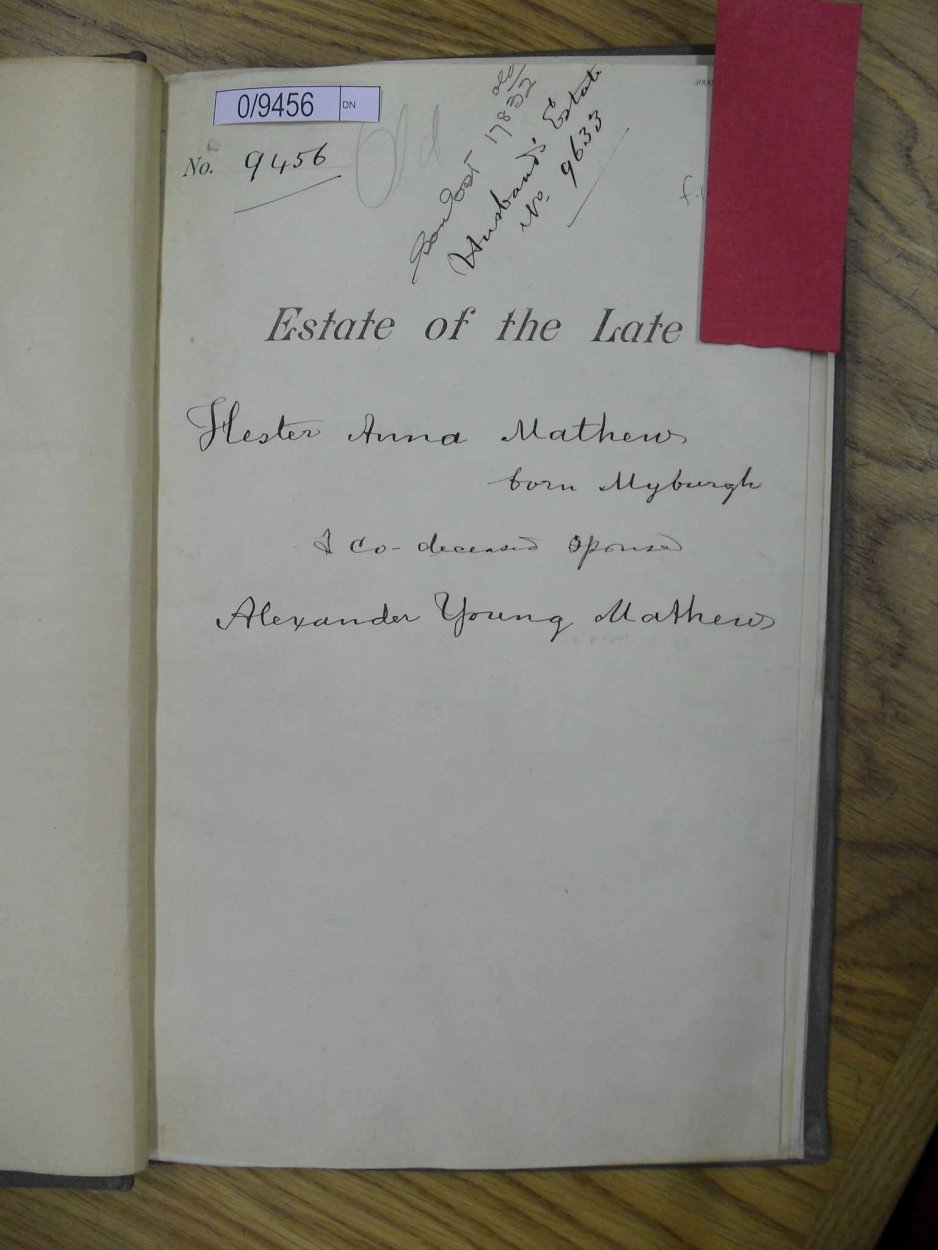 0/9456 DN
No. 9456
Old
old/17832
Husband's Estate
No. 9633
Estate of the Late
Hester Anna Mathews
born Myburgh
& co-deceased spouse
Alexander Young Mathews